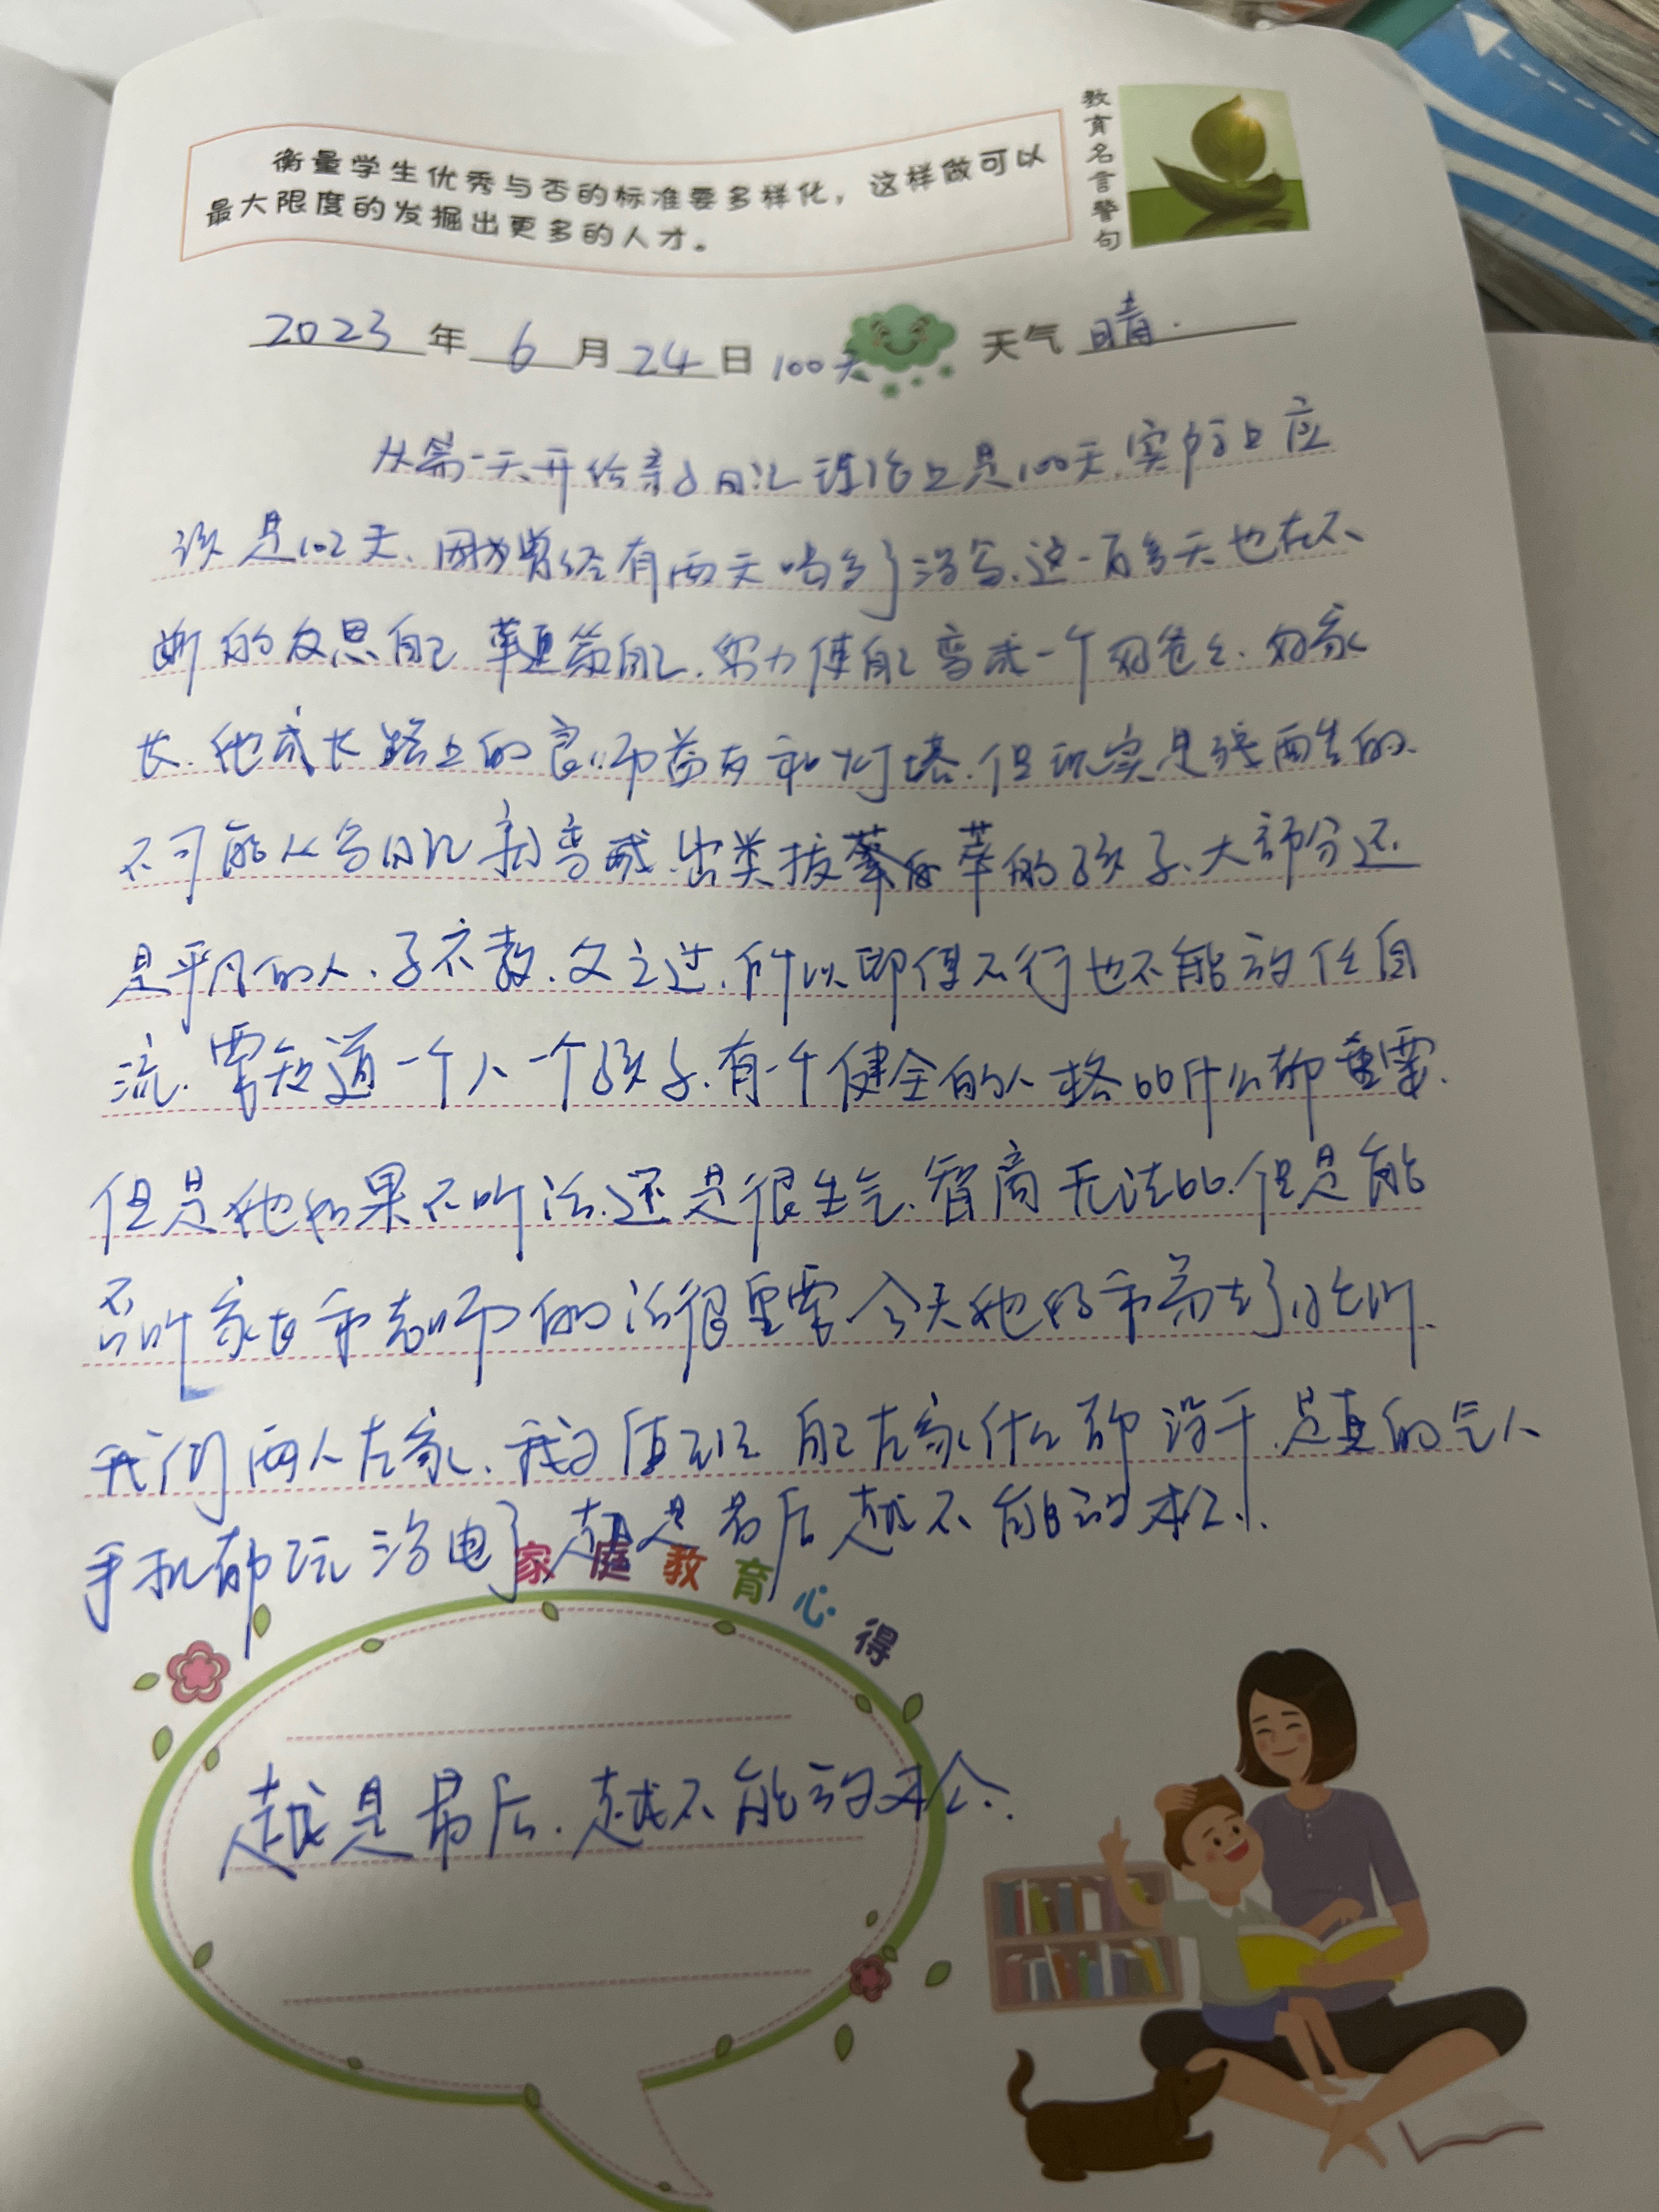 教育名言警句
衡量学生优秀与否的标准要多样化，这样做可以
最大限度的发掘出更多的人才。
2023年6月24日 100天 天气 晴.
从第一天开始亲子日记理论上是100天.实际上应
该是102天、因为曾经有两天喝多了没写、这一百多天也在不
断的反思自己 鞭策自己.努力使自己变成一个好爸爸、好家
长.他成长路上的良师益友和灯塔.但现实是残酷的.
不可能从写日记就变成.出类拔萃的孩子、大部分还
是平凡的人、子不教、父之过、所以即使不行也不能放任自
流.需知道一个人一个孩子.有一个健全的人格比什么都重要.
但是他如果不听话.还是很生气.智商无法比.但是能
否听家长和老师的话很重要 今天他妈去了北川.
我们两人在家、我又值班 自己在家什么都没干.是真的气人
手机都玩没电了 越是最后越不能放松.
家庭教育心得
越是最后.越不能放松.